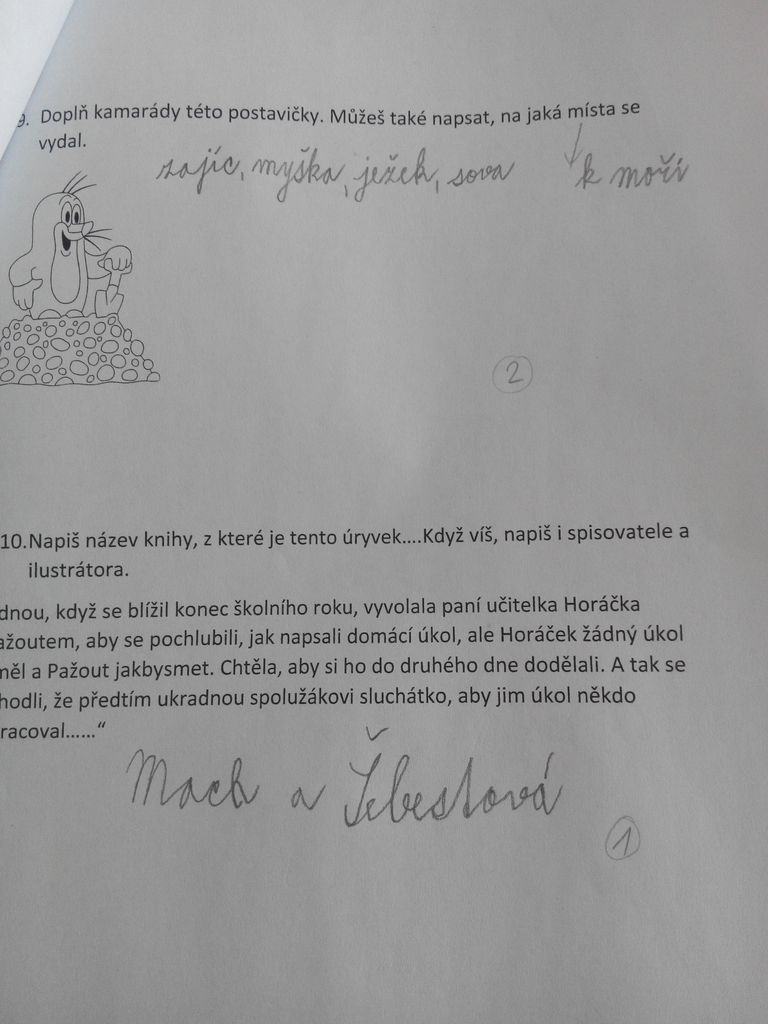 9. Doplň kamarády této postavičky. Můžeš také napsat, na jaká místa se
vydal.
zajíc, myška, ježek, sova k moři
2
10. Napiš název knihy, z které je tento úryvek....Když víš, napiš i spisovatele a
ilustrátora.
dnou, když se blížil konec školního roku, vyvolala paní učitelka Horáčka
ažoutem, aby se pochlubili, jak napsali domácí úkol, ale Horáček žádný úkol
měl a Pažout jakbysmet. Chtěla, aby si ho do druhého dne dodělali. A tak se
hodli, že předtím ukradnou spolužákovi sluchátko, aby jim úkol někdo
racoval......“
Mach a Šebestová
1